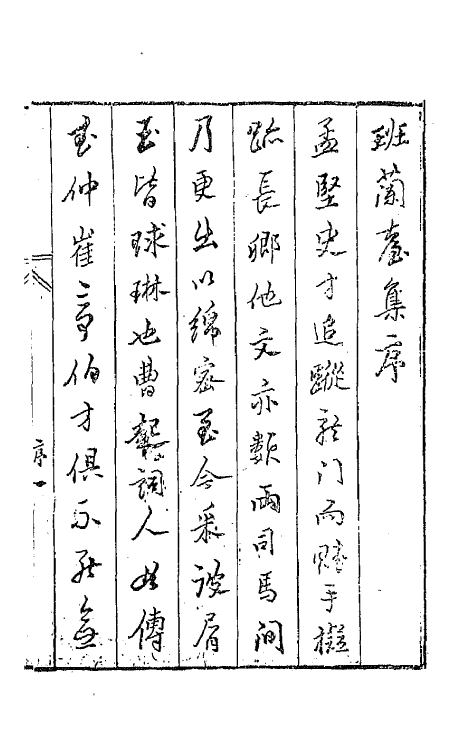 班蘭臺集序
孟堅史才追蹤龍門而賦手擬
跡長卿他文亦類兩司馬間
乃更出以綿密至今采詖屑
玉皆球琳也曹魏詞人如傅
武仲崔亭伯才俱不能無
序一